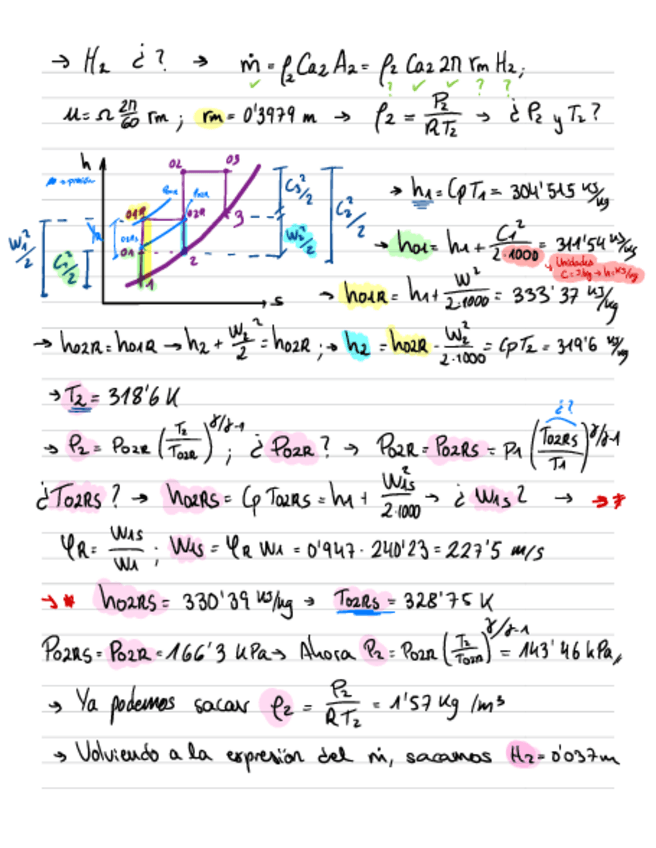 → H₂ ¿? → ṁ = ρ₂ Ca₂ A₂ = ρ₂ Ca₂ 2π rm H₂;
✓ ? ✓ ✓ ? ?
u = Ω 2π/60 rm ; rm = 0'3979 m → ρ₂ = P₂/RT₂ → ¿P₂ y T₂?
h
→ presión
02 03
01R 02R
02RS
01
1 2 3
s
W₁²/2 C₁²/2
C₃²/2 W₂²/2 C₂²/2
→ h₁ = Cp T₁ = 304'515 KJ/kg
→ h₀₁ = h₁ + C₁²/2·1000 = 311'54 KJ/kg
Unidades
→ h₀₁R = h₁ + W²/2·1000 = 333'37 KJ/kg
→ h₀₂R = h₀₁R → h₂ + W₂²/2 = h₀₂R ; → h₂ = h₀₂R - W₂²/2·1000 = Cp T₂ = 319'6 KJ/kg
→ T₂ = 318'6 K
¿?
→ P₂ = P₀₂R (T₂/T₀₂R)^γ/γ-1 ; ¿P₀₂R? → P₀₂R = P₀₂RS = P₁ (T₀₂RS/T₁)^γ/γ-1
¿T₀₂RS? → h₀₂RS = Cp T₀₂RS = h₁ + W₁s²/2·1000 → ¿W₁s? → →*
φR = W₁s/W₁ ; W₁s = φR W₁ = 0'947 · 240'23 = 227'5 m/s
→* h₀₂RS = 330'39 KJ/kg → T₀₂RS = 328'75 K
P₀₂RS = P₀₂R = 166'3 kPa → Ahora P₂ = P₀₂R (T₂/T₀₂R)^γ/γ-1 = 143'46 kPa,,
→ Ya podemos sacar ρ₂ = P₂/RT₂ = 1'57 Kg/m³
→ Volviendo a la expresión del ṁ, sacamos H₂ = 0'037m